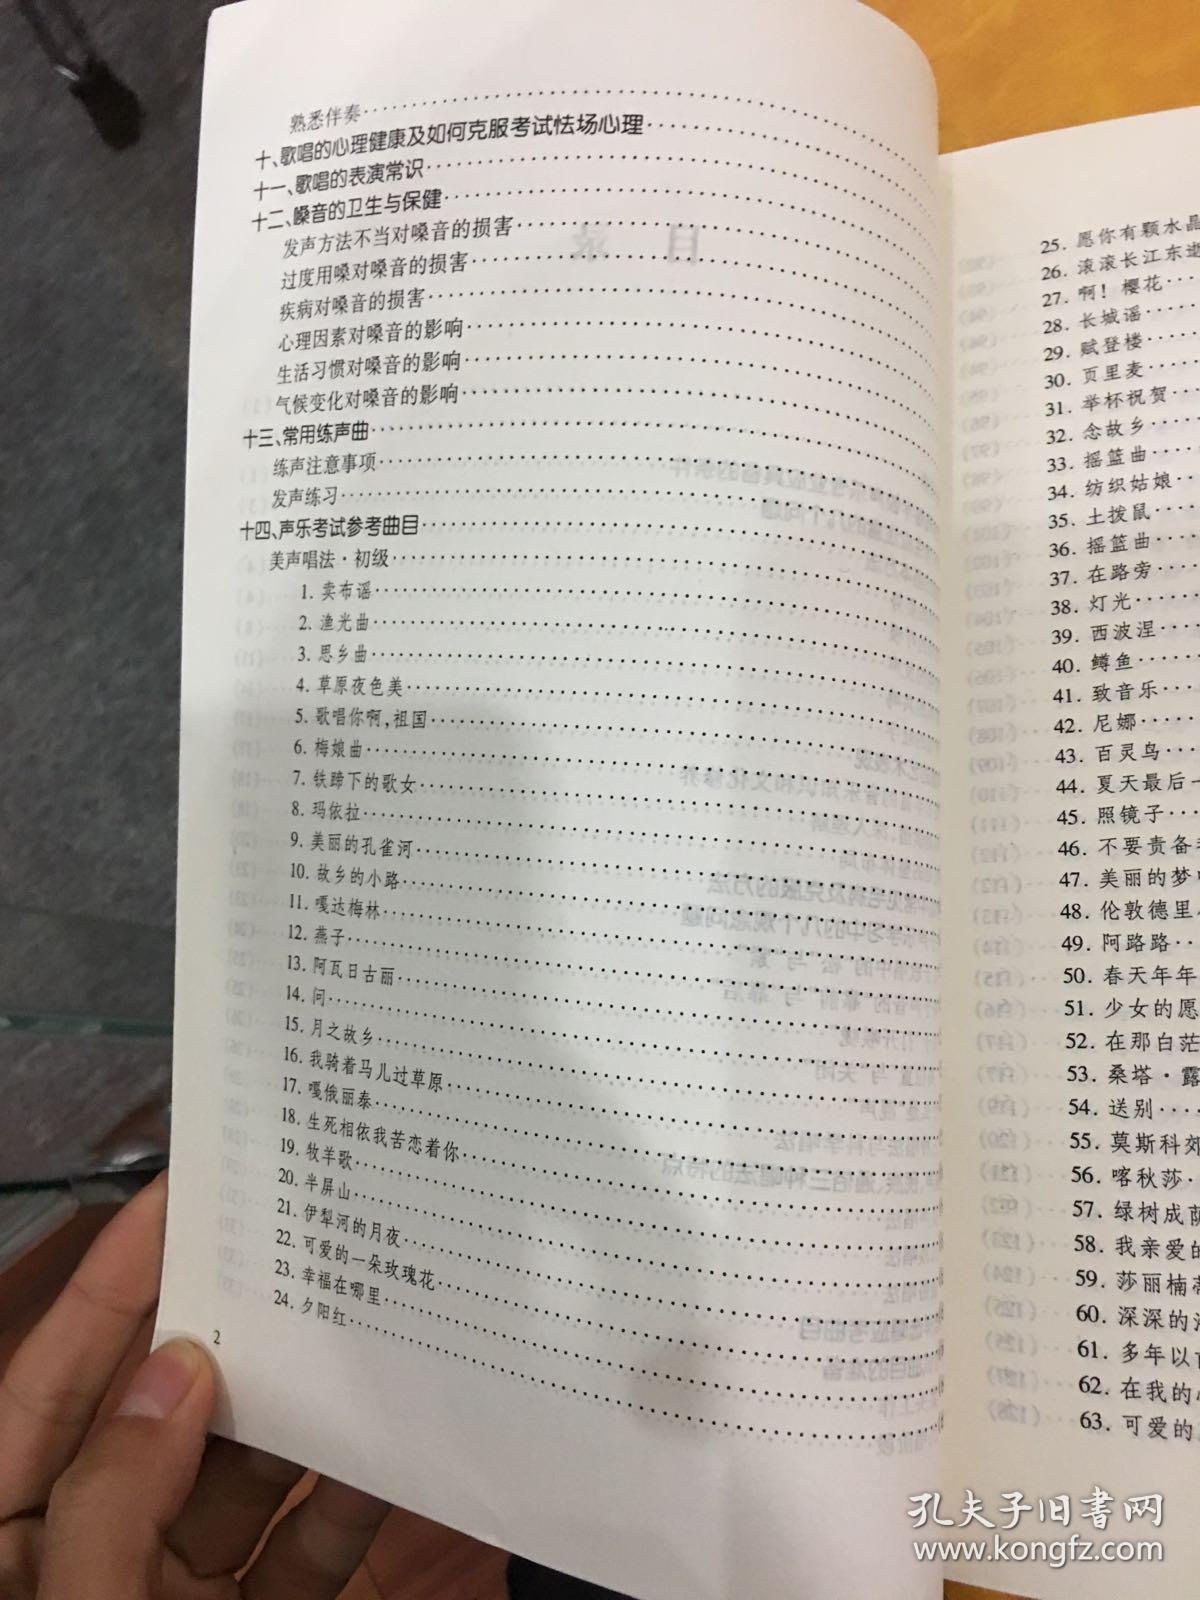 熟悉伴奏
十、歌唱的心理健康及如何克服考试怯场心理
十一、歌唱的表演常识
十二、嗓音的卫生与保健
发声方法不当对嗓音的损害
过度用嗓对嗓音的损害
疾病对嗓音的损害
心理因素对嗓音的影响
生活习惯对嗓音的影响
气候变化对嗓音的影响
十三、常用练声曲
练声注意事项
发声练习
十四、声乐考试参考曲目
美声唱法·初级
1. 卖布谣
2. 渔光曲
3. 思乡曲
4. 草原夜色美
5. 歌唱你啊,祖国
6. 梅娘曲
7. 铁蹄下的歌女
8. 玛依拉
9. 美丽的孔雀河
10. 故乡的小路
11. 嘎达梅林
12. 燕子
13. 阿瓦日古丽
14. 问
15. 月之故乡
16. 我骑着马儿过草原
17. 嘎俄丽泰
18. 生死相依我苦恋着你
19. 牧羊歌
20. 半屏山
21. 伊犁河的月夜
22. 可爱的一朵玫瑰花
23. 幸福在哪里
24. 夕阳红
2
25. 愿你有颗水晶
26. 滚滚长江东逝
27. 啊！樱花
28. 长城谣
29. 赋登楼
30. 页里麦
31. 举杯祝贺
32. 念故乡
33. 摇篮曲
34. 纺织姑娘
35. 土拨鼠
36. 摇篮曲
37. 在路旁
38. 灯光
39. 西波涅
40. 鳟鱼
41. 致音乐
42. 尼娜
43. 百灵鸟
44. 夏天最后一
45. 照镜子
46. 不要责备
47. 美丽的梦
48. 伦敦德里
49. 阿路路
50. 春天年年
51. 少女的愿
52. 在那白茫
53. 桑塔·露
54. 送别
55. 莫斯科郊
56. 喀秋莎
57. 绿树成荫
58. 我亲爱的
59. 莎丽楠蒂
60. 深深的
61. 多年以前
62. 在我的心
63. 可爱的
孔夫子旧书网
www.kongfz.com